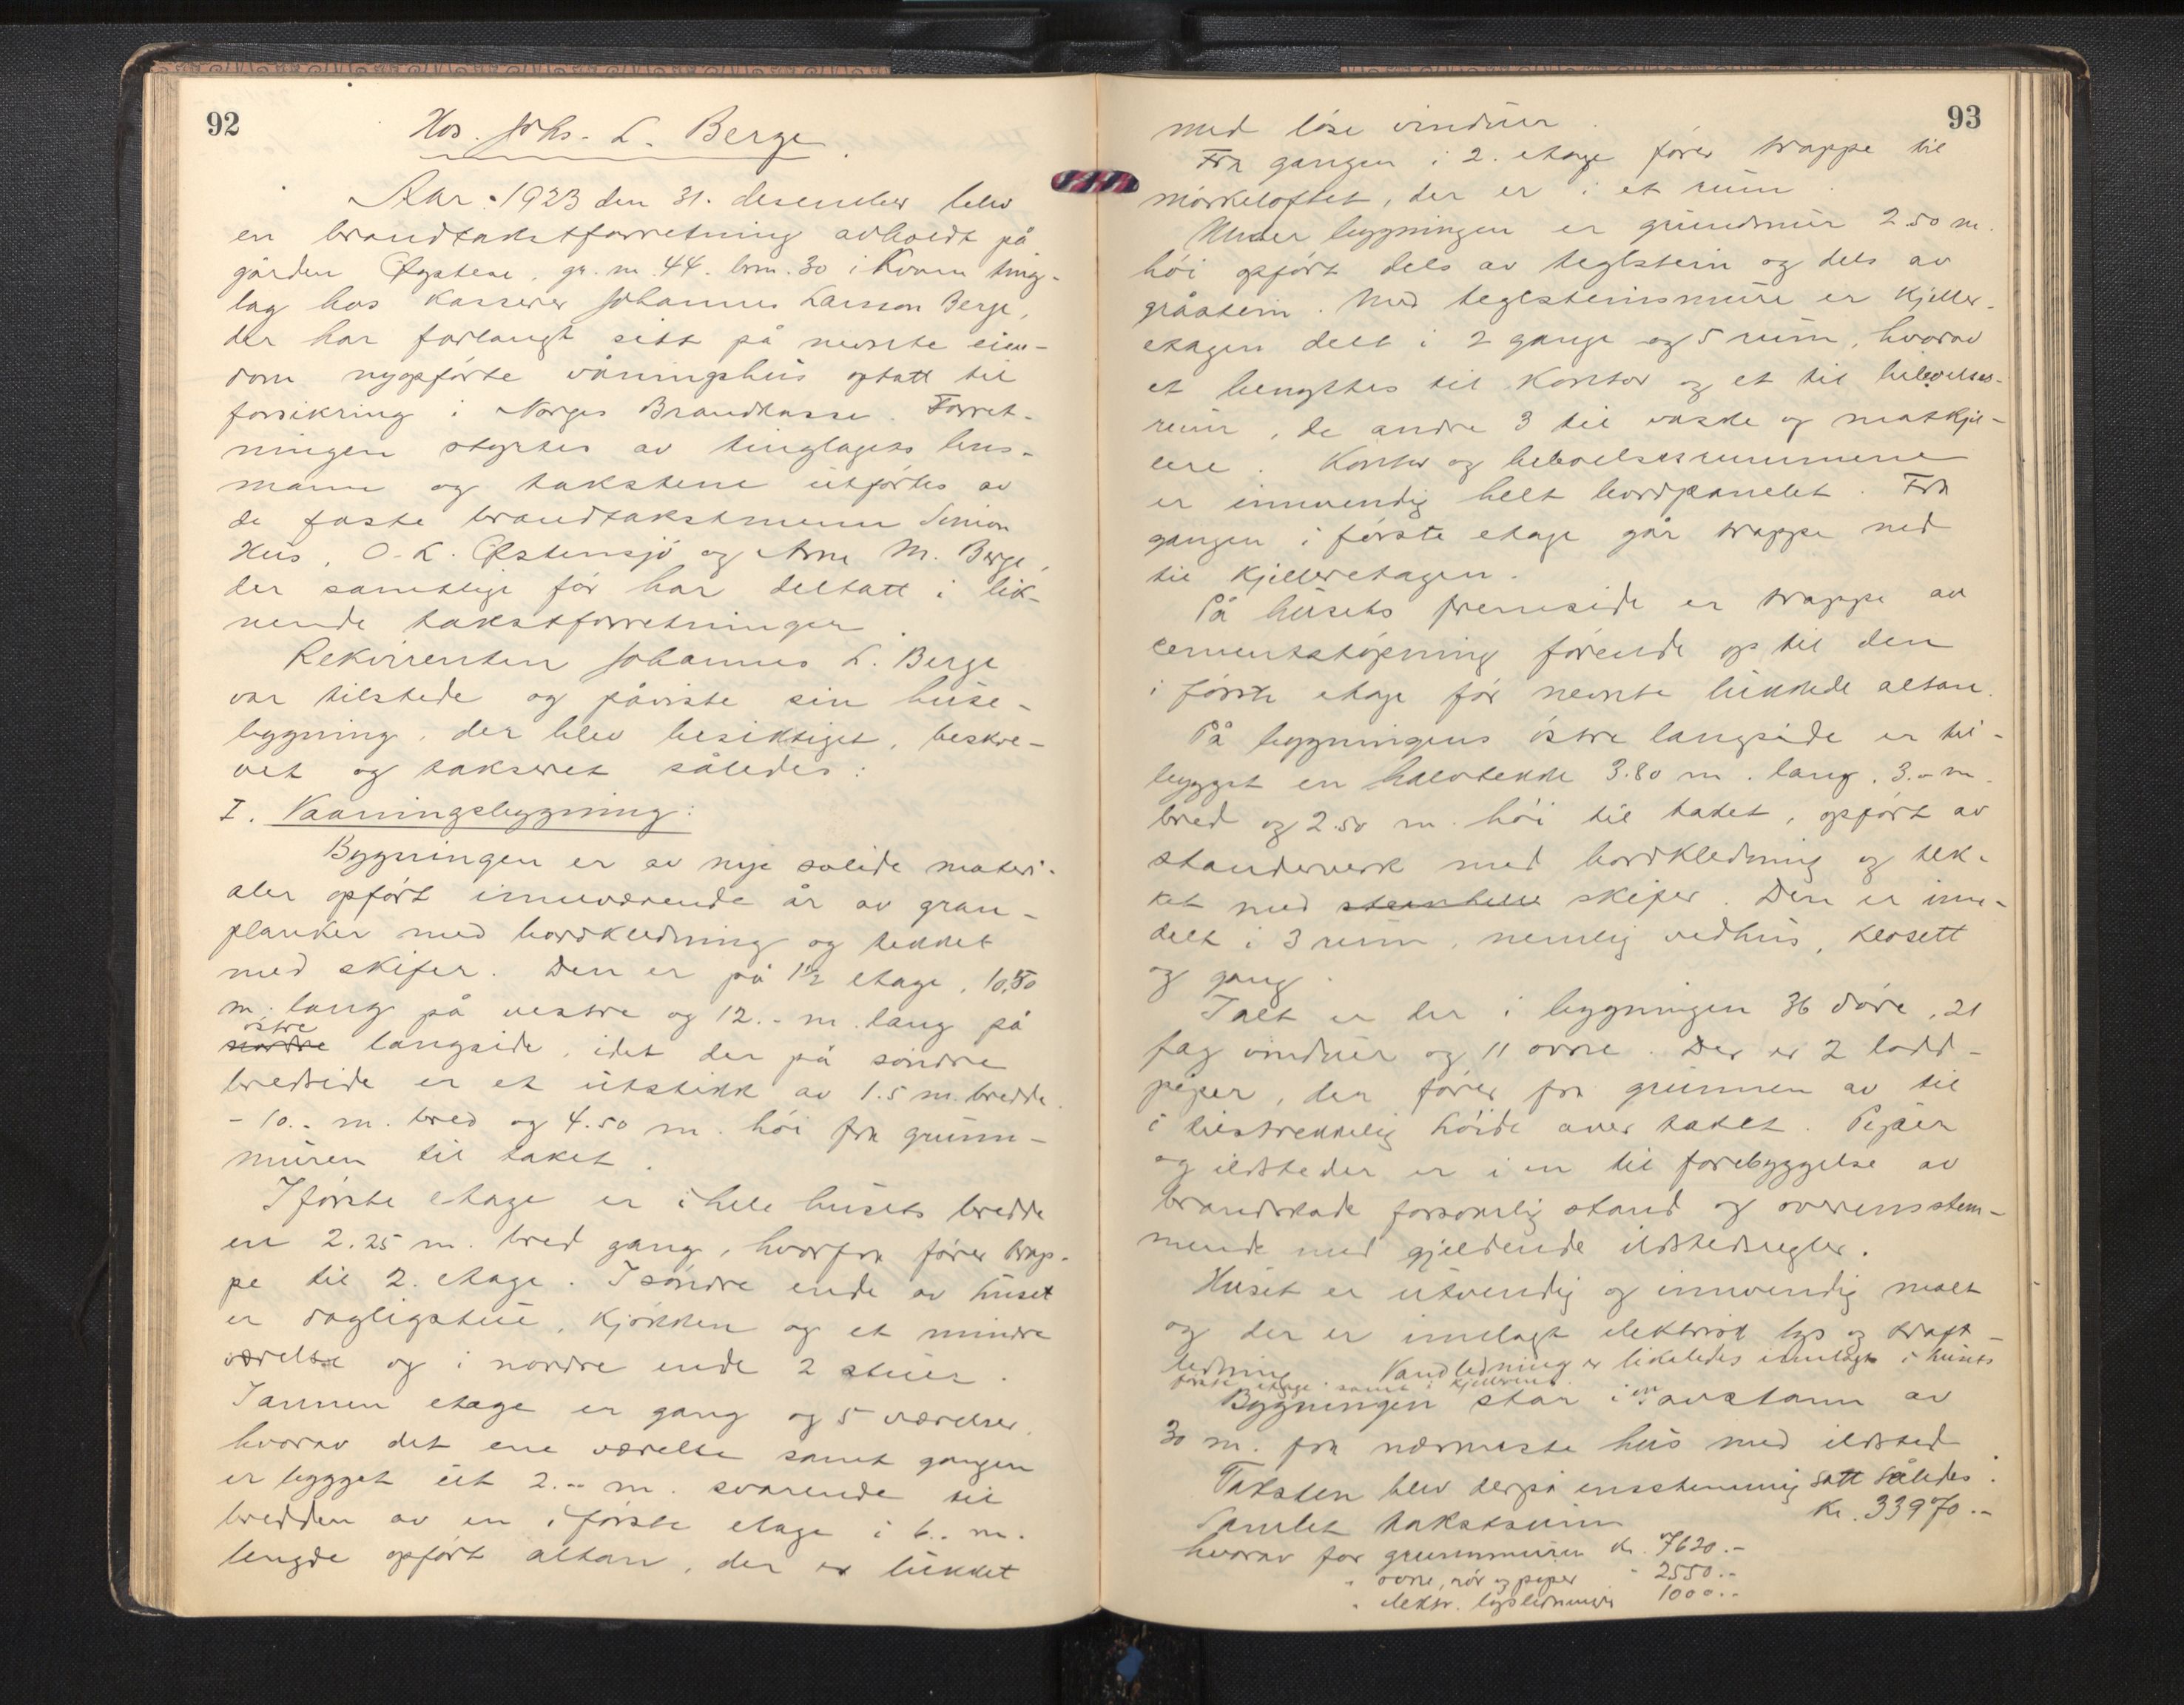 92
Hos. Johs. L. Berge.
Aar 1923 den 31. desember blev
en brandtakstforretning avholdt på
gården Øystese, gr. nr. 44. brn. 30 i Kvam ting-
lag hos kasserer Johannes Larsson Berge,
der har forlangt sitt på nevnte eien-
dom nyopførte våningshus optatt til
forsikring i Norges Brandkasse. Forret-
ningen styrtes av tinglagets lens-
mann og takstene utførtes av
de faste brandtakstmenn Simon
Hus, O. K. Østensjø og Arne M. Berge,
der samtlige før har deltatt i lik-
nende takstforretninger.
Rekvirenten Johannes L. Berge
var tilstede og påviste sin huse-
bygning, der blev besiktiget, beskre-
vet og taksert således:
I. Vaaningsbygning:
Bygningen er av nye solide materi-
aler opført inneværende år av gran-
planker med bordkledning og tekket
med skifer. Den er på 1½ etage, 10.50
m. lang på vestre og 12.- m. lang på
østre
nordre langside, idet der på søndre
bredside er et utstikk av 1.5 m. bredde
- 10.- m. bred og 4.50 m. høi fra grunn-
muren til taket.
I første etage er i hele husets bredde
en 2.25 m. bred gang, hvorfra fører trap-
pe til 2. etage. I søndre ende av huset
er dagligstue, kjøkken og et mindre
værelse og i nordre ende 2 stuer.
I annen etage er gang og 5 værelser,
hvorav det ene værelse samt gangen
er bygget ut 2.- m. svarende til
bredden av en i første etage i 6.- m.
lengde opført altan, der er lukket
93
med løse vinduer.
Fra gangen i 2. etage fører trappe til
mørkeloftet, der er i et rum.
Under bygningen er grundmur 2.50 m.
høi opført dels av teglstein og dels av
gråstein. Med teglsteinsmure er kjeller-
etagen delt i 2 gange og 5 rum, hvorav
et benyttes til kontor og et til beboelses-
rum, de andre 3 til vaske og matkjel-
lere. Kontor og beboelsesrummene
er innvendig helt bordpanelet. Fra
gangen i første etage går trappe ned
til kjelleretagen.
På husets fremside er trappe av
cementstøpning førende op til den
i første etage før nevnte lukkede altan.
På bygningens østre langside er til-
bygget en halvtekke 3.80 m. lang, 3.- m.
bred og 2.50 m. høi til taket, opført av
standerverk med bordkledning og tek-
ket med steinhelle skifer. Den er inn-
delt i 3 rum, nemlig vedhus, klosett
og gang.
Talt er der i bygningen 36 døre, 21
fag vinduer og 11 ovne. Der er 2 lodd-
piper, der fører fra grunnen av til
i tilstrekkelig høide over taket. Piper
og ildsteder er i en til forebyggelse av
brandskade forsvarlig stand og overensstem-
mende med gjeldende ildstedsregler.
Huset er utvendig og innvendig malt
og der er innlagt elektrisk lys og kraft-
ledning. Vandledning er likeledes innlagt i husets
første etage samt i kjelleren.
Bygningen står i en avstann av
30 m. fra nærmeste hus med ildsted.
Taksten blev derpå enstemmig satt således:
Samlet takstsum Kr. 33970.-
hvorav for grunnmuren kr. 7620.-
" ovne, rør og piper " 2550.-
" elektr. lysledninger 1000.-